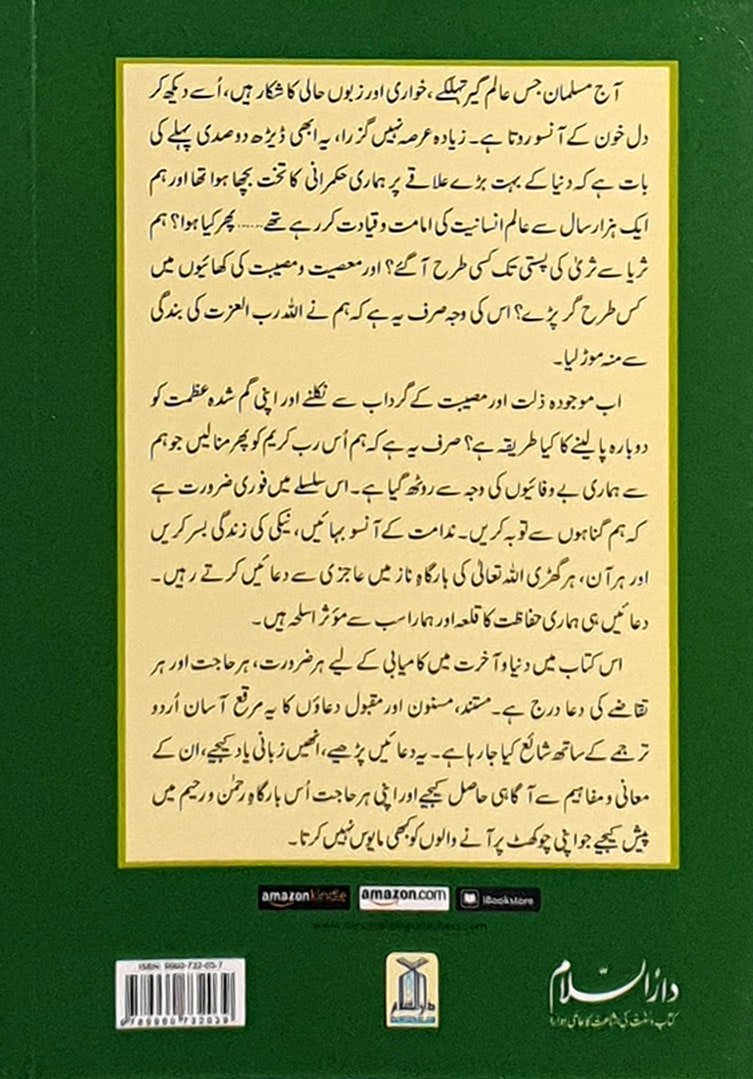 آج مسلمان جس عالم گیر تہلکے، خواری اور زبوں حالی کا شکار ہیں، اُسے دیکھ کر
دل خون کے آنسو روتا ہے۔ زیادہ عرصہ نہیں گزرا، یہ ابھی ڈیڑھ دو صدی پہلے کی
بات ہے کہ دنیا کے بہت بڑے علاقے پر ہماری حکمرانی کا تخت بچھا ہوا تھا اور ہم
ایک ہزار سال سے عالم انسانیت کی امامت و قیادت کر رہے تھے...... پھر کیا ہوا؟ ہم
ثریا سے ثریٰ کی پستی تک کسی طرح آ گئے؟ اور معصیت و مصیبت کی کھائیوں میں
کس طرح گر پڑے؟ اس کی وجہ صرف یہ ہے کہ ہم نے اللہ رب العزت کی بندگی
سے منہ موڑ لیا۔
اب موجودہ ذلت اور مصیبت کے گرداب سے نکلنے اور اپنی گم شدہ عظمت کو
دوبارہ پا لینے کا کیا طریقہ ہے؟ صرف یہ ہے کہ ہم اُس رب کریم کو پھر منا لیں جو ہم
سے ہماری بے وفائیوں کی وجہ سے روٹھ گیا ہے۔ اس سلسلے میں فوری ضرورت ہے
کہ ہم گناہوں سے توبہ کریں۔ ندامت کے آنسو بہائیں، نیکی کی زندگی بسر کریں
اور ہر آن، ہر گھڑی اللہ تعالیٰ کی بارگاہِ ناز میں عاجزی سے دعائیں کرتے رہیں۔
دعائیں ہی ہماری حفاظت کا قلعہ اور ہمارا سب سے مؤثر اسلحہ ہیں۔
اس کتاب میں دنیا و آخرت میں کامیابی کے لیے ہر ضرورت، ہر حاجت اور ہر
تقاضے کی دعا درج ہے۔ مستند، مسنون اور مقبول دعاؤں کا یہ مرقع آسان اُردو
ترجمے کے ساتھ شائع کیا جا رہا ہے۔ یہ دعائیں پڑھیے، انھیں زبانی یاد کیجیے، ان کے
معانی و مفاہیم سے آگاہی حاصل کیجیے اور اپنی ہر حاجت اُس بارگاہِ رحمٰن و رحیم میں
پیش کیجیے جو اپنی چوکھٹ پر آنے والوں کو کبھی مایوس نہیں کرتا۔
amazonkindle amazon.com iBookstore
ISBN:
دارُالسّلام